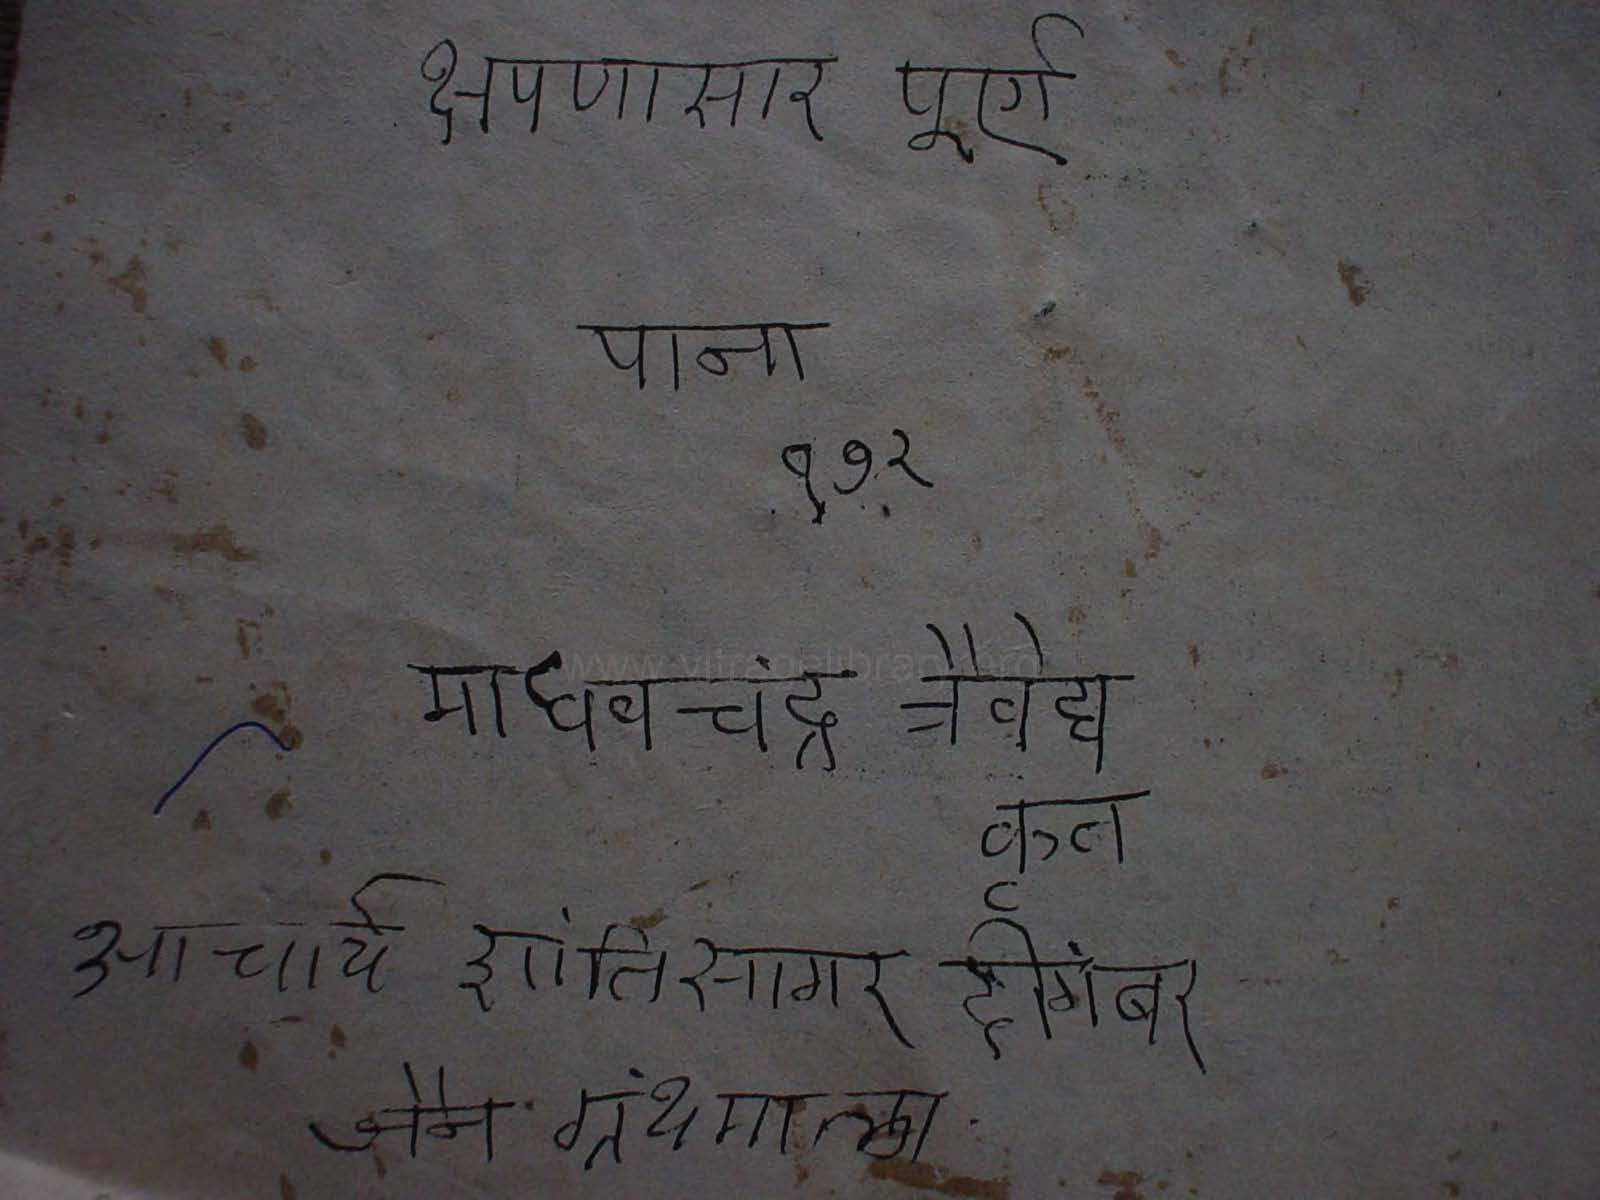 क्षपणासार पूर्ण
पाना
१७२
माधवचंद्र त्रैवेद्य
कृत
आचार्य शांतिसागर दीगंबर
जैन ग्रंथमाला.
www.vitragelibrary.org